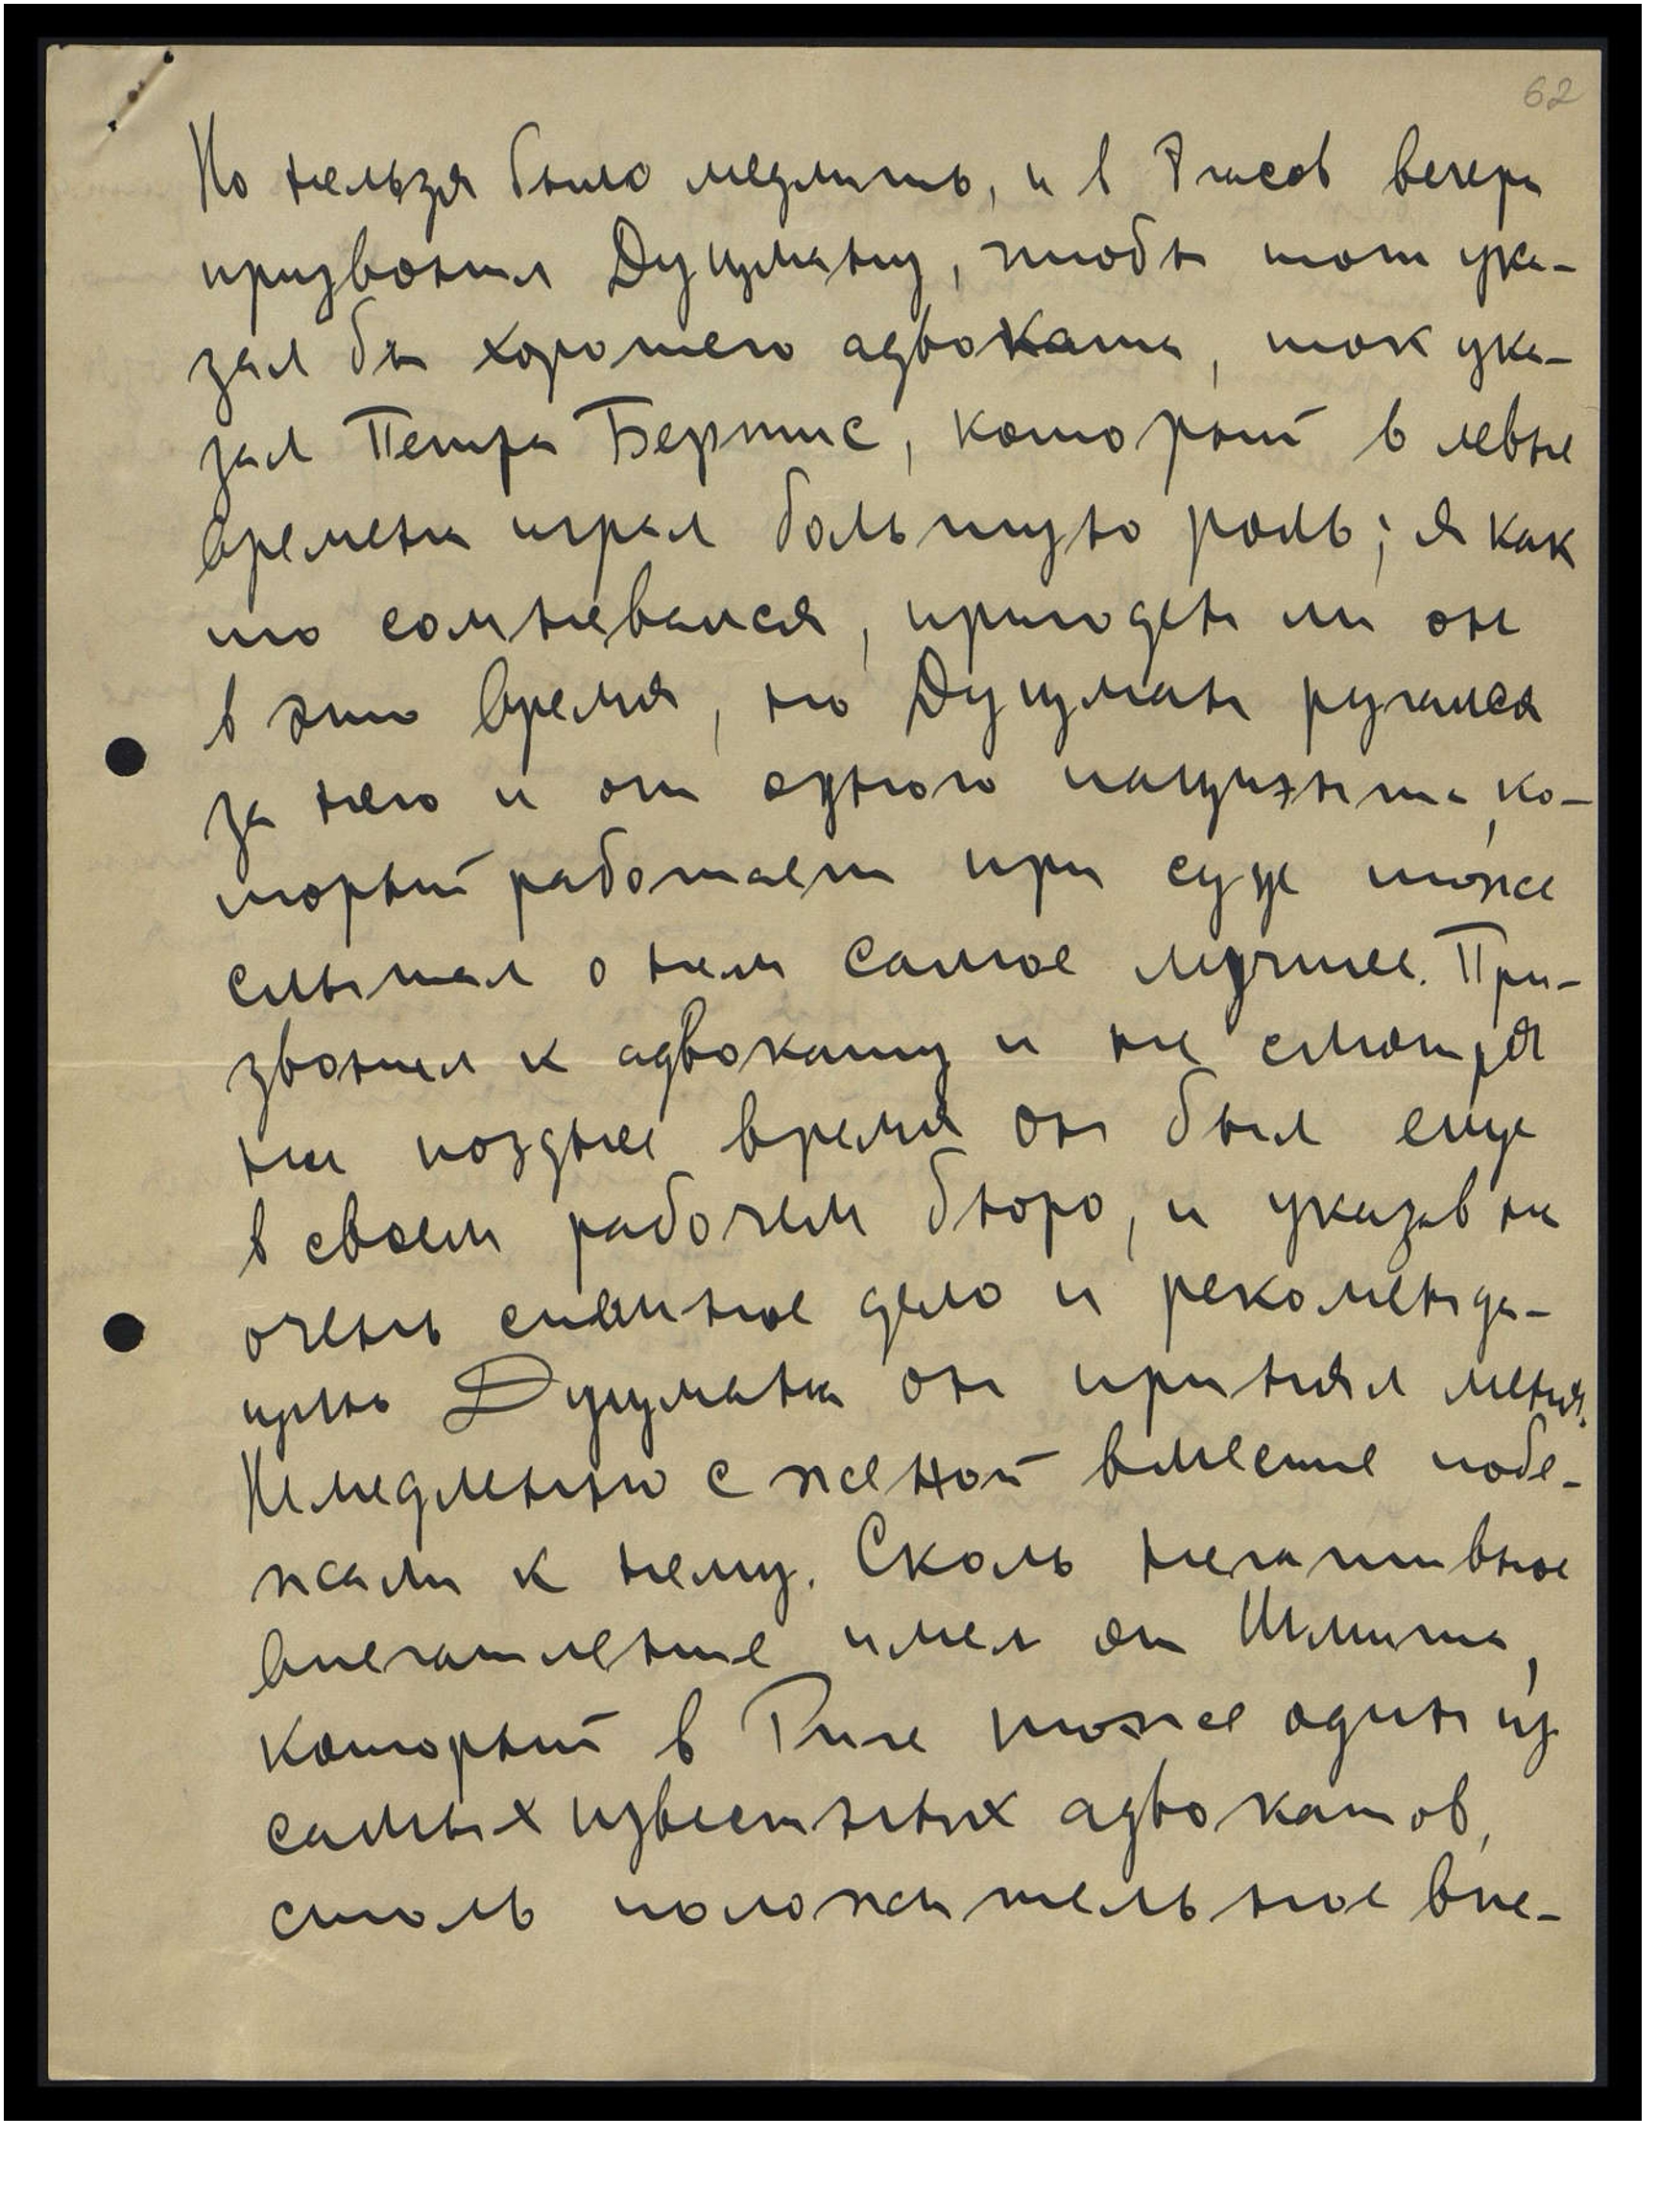 62
Но нельзя было медлить, и в 7 часов вечера
призвонил Дуцману, чтобы тот ука-
зал бы хорошего адвоката, ток ука-
зал Петра Бертис, который в левые
времена играл большую роль; я как
то сомневался, пригоден ли он
в это время, но Дуцман ручался
за него и от одного пациэнта, ко-
торый работает при суде тоже
слышал о нем самое лучшее. При-
звонил к адвокату и не смотря
на позднее время он был еще
в своем рабочем бюро, и указав на
очень спешное дело и рекоменда-
цию Дуцмана он принял меня.
Немедленно с женой вместе побе-
жали к нему. Сколь негативное
впечатление имел от Шмита,
который в Риге тоже один из
самых известных адвокатов,
столь положительное впе-